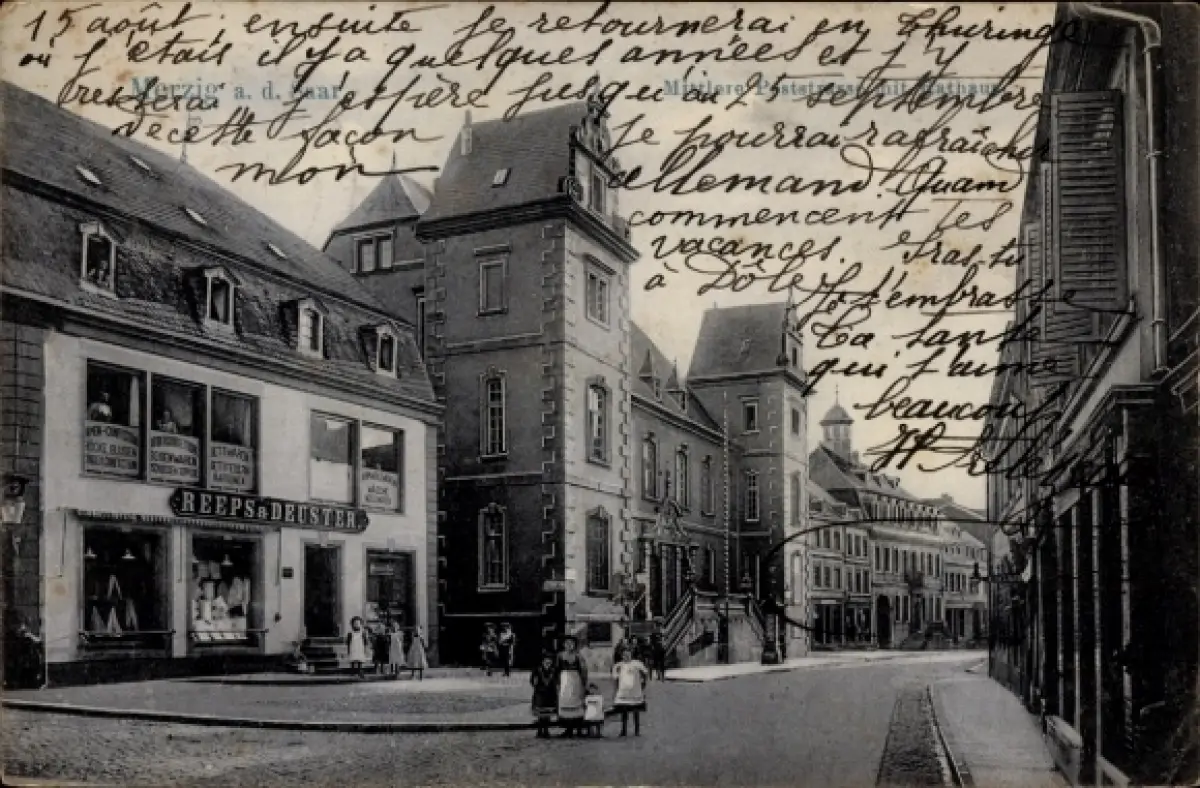 15 août, ensuite je retournerai en Thuringe
où j'étais il y a quelques années et j'y
resterai j'espère jusqu'au 25 septembre
De cette façon je pourrai rafraîchir
mon allemand. Quand
commencent les
vacances. Iras-tu
à Dôle. Je t'embrasse
Ta tante
qui t'aime
beaucoup
Merzig a. d. Saar
Mittlere Poststrasse mit Rathaus
REEPS & DEUSTER.